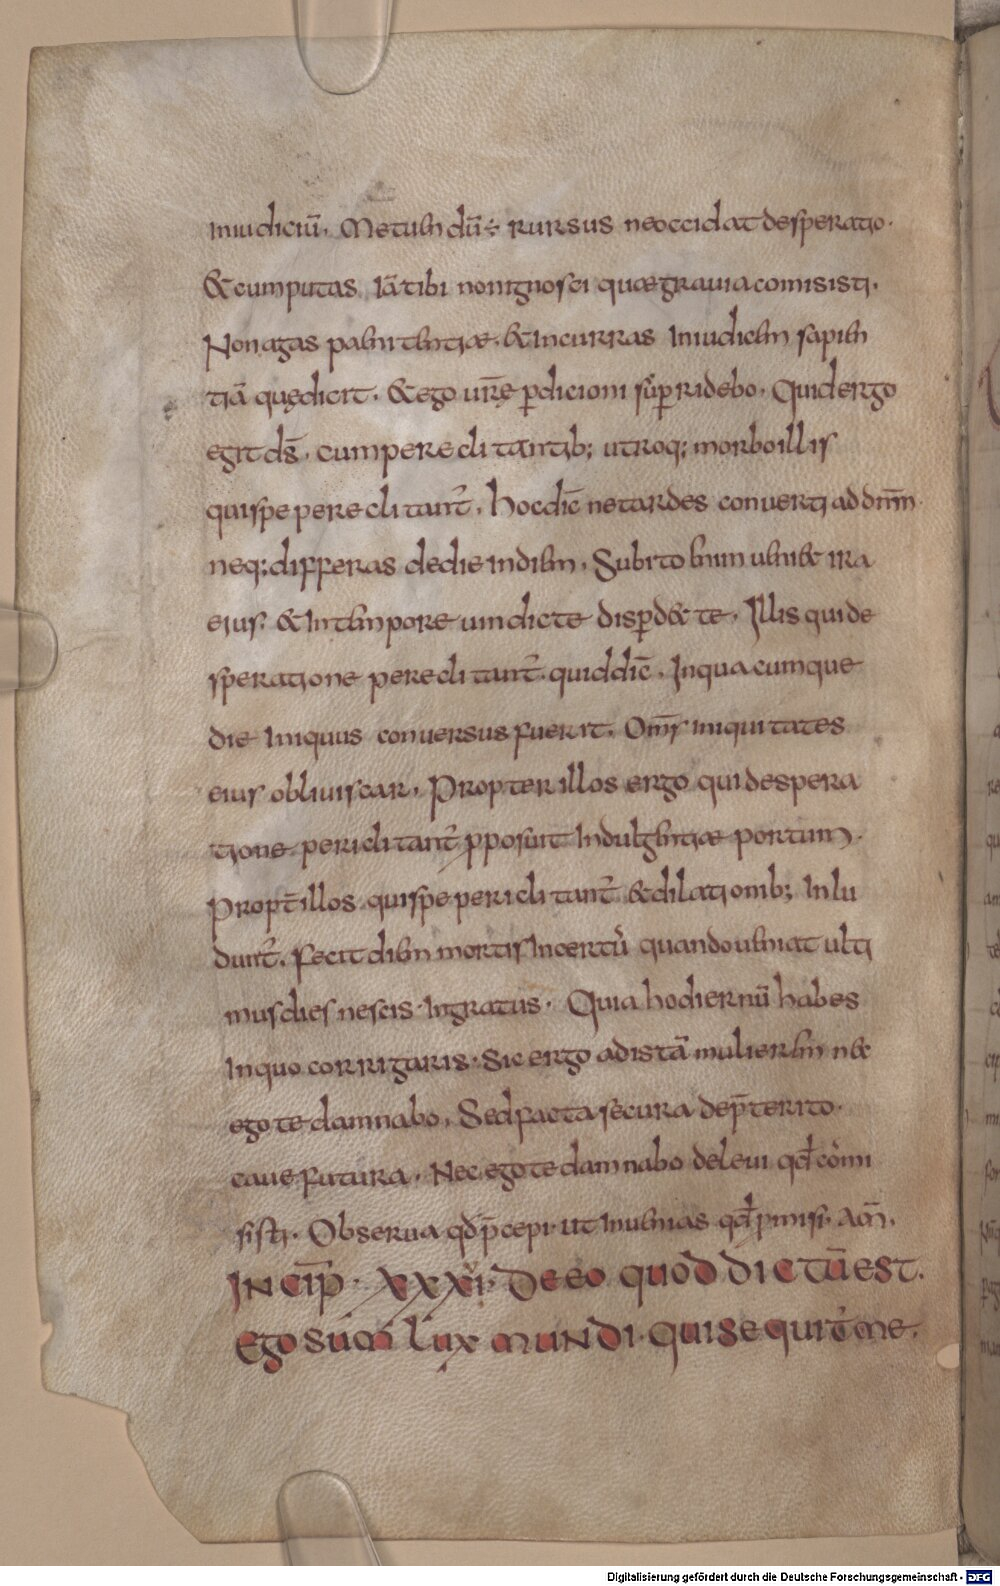 iniudiciū. Metuendū÷ rursus neoccidat desperatio.
&cumputas iātibi nonignosci quægrauia comisisti.
Non agas paenitentiæ. &incurras iniudicium sapien
tiā quędicit. &ego ur̄ę ꝑdicioni suꝑridebo. Quid ergo
egit d̄s. cumpereclitantib; utroq; morbo illis
quispe pereclitant᷒. hoc dic̄ netardes conuerti ad dnm̄.
neq; differas dedie indiem. Subito enim ueni& ira
eius &intempore uindicte disꝑd& te. Illis qui de
speratione pereclitant᷒. quid dic̄. Inquacumque
die iniquus conuersus fuerit. Om̄s iniquitates
eius obliuiscar. Propter illos ergo qui despera
tione periclitant᷒ ꝓposuit indulgentiæ portum.
Propt̄ illos quispe periclitant᷒ &dilationib; inlu
dunt᷒. fecit diem mortis incertū quando ueniat ulti
musdies nescis. Ingratus. Quia hodiernū habes
inquo corrigaris. Sic ergo adistā mulierem n&
ego te damnabo. Sed facta secura dep̄terito.
caue futura. Nec ego te damnabo deleui qd̄ cōmi
sisti. Obserua qd̄ p̄cepi. ut inuenias qd̄ ꝓmisi. am̄.
INCIP̄. XXXVI. DE EO QUOD DICTŪ EST.
EGO SUM LUX MUNDI. QUI SEQUIT᷒ ME.
Digitalisierung gefördert durch die Deutsche Forschungsgemeinschaft - DFG